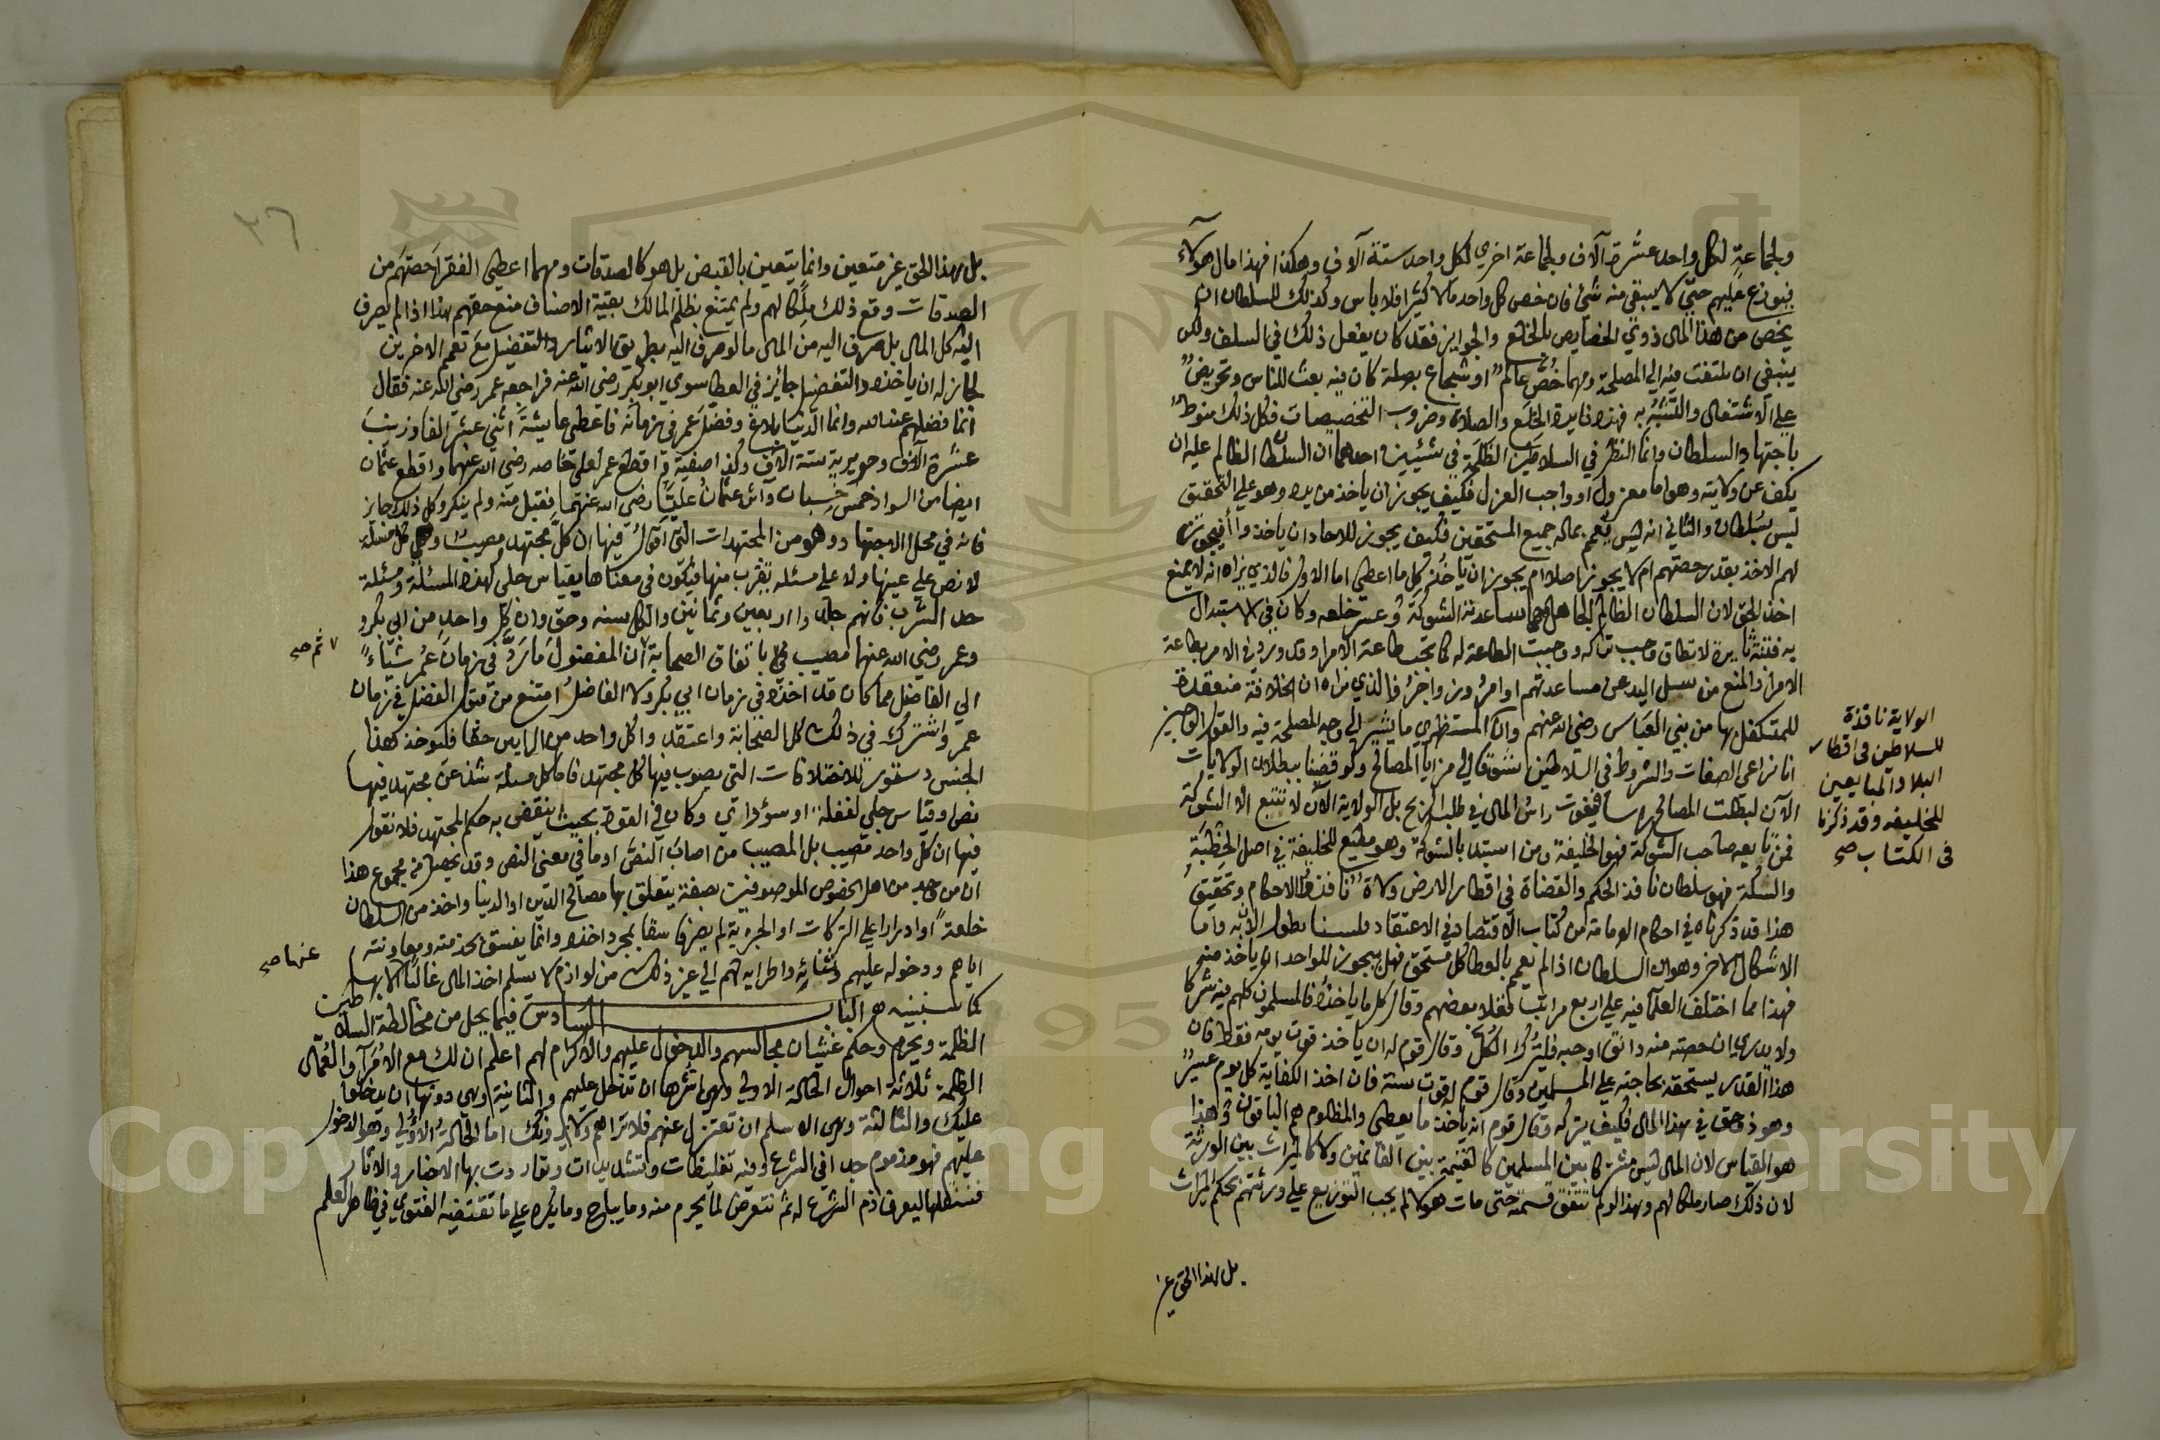 ولجماعة لكل واحد عشرة آلاف ولجماعة اخري لكل واحد ستة آلاف وهكذا فهذا مال هولاء
فيوزع عليهم حتي لا يبقي منه شئ فان خص كل واحد مالا كثيرا فلا باس وكذلك للسلطان ان
يخص من هذا المال ذوي الخصايص بالخلع والجوايز فقد كان يفعل ذلك في السلف ولكن
ينبغي ان يلتفت فيه الي المصلحة ومهما خُص عالم او شجاع بصلة كان فيه بعث للناس وتحريض
علي الاشتغال والتشبه به فهذه فايدة الخلع والصلاة وضروب التخصيصات فكل ذلك منوط
باجتهاد السلطان وانما النظر في السلاطين الظلمة في شئيين احدهما ان السلطان الظالم عليه ان
يكف عن ولايته وهو اما معزول او واجب العزل فكيف يجوز ان ياخذ من يده وهو علي التحقيق
ليس بسلطان والثاني انه ليس يعمم بماله جميع المستحقين فكيف يجوز للاحاد ان ياخذوا أفيجوز
لهم الاخذ بقدر حصتهم ام لا يجوز اصلا ام يجوز ان ياخذ كل ما اعطي اما الاول فالذي نراه انه لا يمنع
اخذ الحق لان السلطان الظالم الجاهل مهما ساعدته الشوكة وعسر خلعه وكان في الاستبدال
به فتنة ثايرة لا تطاق وجب تركه ووجبت الطاعة له كما تجب طاعة الامرا وقد ورد في الامر بطاعة
الامرا والمنع من سل اليد عن مساعدتهم اوامر وزواجر فالذي نراه ان الخلافة منعقدة
للمتكفل بها من بني العباس رضي الله عنهم وان المستظهري ما يشير الي وجه المصلحة فيه والقول الوجيز
انا نراعي الصفات والشروط في السلاطين تشوقا الي مزايا المصالح ولو قضينا ببطلان الولايات
الآن لبطلت المصالح راسا فيفوت راس المال في طلب الربح بل الولاية الآن لا تتبع الا الشوكة
فمن بايعه صاحب الشوكة فهو الخليفة ومن استبد بالشوكة وهو مطيع للخليفة في اصل الخطبة
والسكة فهو سلطان نافذ الحكم والقضاة في اقطار الارض ولاة نافذوا الاحكام وتحقيق
هذا قد ذكرناه في احكام الامامة من كتاب الاقتصاد في الاعتقاد فلسنا نطول الان به واما
الاشكال الاخر وهو ان السلطان اذا لم يعم بالعطا كل مستحق فهل يجوز للواحد ان ياخذ منه
فهذا مما اختلف العلما فيه علي اربع مراتب فغلا بعضهم وقال كل ما ياخذه فالمسلمون كلهم فيه شركا
ولا يدري ان حصته منه دانق او حبه فليترك الكل وقال قوم له ان ياخذ قوت يومه فقط فان
هذا القدر يستحقه بحاجته علي المسلمين وقال قوم له قوت سنة فان اخذ الكفاية كل يوم عسير
وهو ذو حق في هذا المال فكيف يتركه وقال قوم انه ياخذ ما يعطي والمظلوم هم الباقون وهذا
هو القياس لان المال ليس مشتركا بين المسلمين كالغنيمة بين الغانمين ولا كالميراث بين الورثة
لان ذلك صار ملكا لهم وهذا لو لم تتفق قسمته حتى مات هولا لم يجب التوزيع علي ورثتهم بحكم الميراث
بل هذا الحق غير
الولاية نافذة
للسلاطين في اقطار
البلاد المبايعين
للخليفه وقد ذكرنا
في الكتاب صح
٣٦
بل هذا الحق غير متعين وانما يتعين بالقبض بل هو كالصدقات ومهما اعطي الفقرا حصتهم من
الصدقات وقع ذلك ملكا لهم ولم يمتنع بظلم المالك بقية الاصناف منع حقهم هذا اذا لم يصرف
اليه كل المال بل صرف اليه من المال ما لو صرف اليه بطريق الايثار والتفضيل مع تعميم الاخرين
لجاز له ان ياخذه والتفضيل جائز في العطا سوي ابو بكر رضي الله عنه فراجعه عمر رضي الله عنه فقال
انما فضلهم عند الله وانما الدنيا بلاغ وفضل عمر في زمانه فاعطي عايشة اثني عشر الفا وزينب
عشرة آلاف وجويرية ستة الاف وكذا صفية واقطع عمر لعلي خاصه رضي الله عنهما واقطع عثمان
ايضا من السواد خمس جنبات وآثر عثمان عليا رضي الله عنهما فقبل منه ولم ينكر وكل ذلك جايز
فانه في محل الاجتهاد وهو من المجتهدات التي اقول فيها ان كل مجتهد مصيب وهي كل مسئلة
لا نص علي عينها ولا علي مسئله تقرب منها فيكون في معناها بقياس جلي كهذه المسئلة ومسئلة
حد الشرب فانهم جلدوا اربعين وثمانين والكل سنه وحق وان كل واحد من ابي بكر و
وعمر رضي الله عنهما مصيب باتفاق الصحابة ان المفضول ما رد في زمان عمر شيئا
الي الفاضل مما كان قد اخذه في زمان ابي بكر ولا الفاضل امتنع من قبول الفضل في زمان
عمر واشترك في ذلك كل الصحابة واعتقدوا كل واحد من الرايين حقا فليوخذ هذا
الجنس دستور للاختلافات التي يصوب فيها كل مجتهد فاما كل مسئلة شذ عن مجتهد فيها
نص او قياس جلي لغفلة او سؤ راي وكان في القوة بحيث ينقض به حكم المجتهد فلا نقول
فيها ان كل واحد مصيب بل المصيب من اصاب النص او ما في معني النص وقد تحصل من مجموع هذا
ان من وجد من اهل الخصوص الموصوفين بصفة يتعلق بها مصالح الدين او الدنيا واخذ من السلطان
خلعة او ادرارا علي التركات او الجزية لم يصر فاسقا بمجرد اخذه وانما يفسق بخدمته ومعاونته
اياهم ودخوله عليهم وثنائه واطرايه لهم الي غير ذلك من لوازم لا يسلم اخذ المال غالبا الا بها
كما سنبينه الباب السادس فيما يحل من مخالطة السلاطين
الظلمة ويحرم وحكم غشيان مجالسهم والدخول عليهم والاكرام لهم اعلم ان لك مع الامرآء والعمال
الظلمة ثلاثة احوال الحالة الاولي وهي اشرها ان تدخل عليهم والثانية وهي دونها ان يدخلوا
عليك والثالثة وهي الاسلم ان تعتزل عنهم فلا تراهم ولا يرونك اما الحالة الاولي وهو الدخول
عليهم فهو مذموم جدا في الشرع وفيه تغليظات وتشديدات وتواردت بها الاخبار والاثار
فننقلها ليعرف ذم الشرع له ثم نتعرض لما يحرم منه وما يباح وما يكره علي ما تقتضيه الفتوي في ظاهر العلم
ثم صح
عنها صح
Copyright © King Saud University
1957